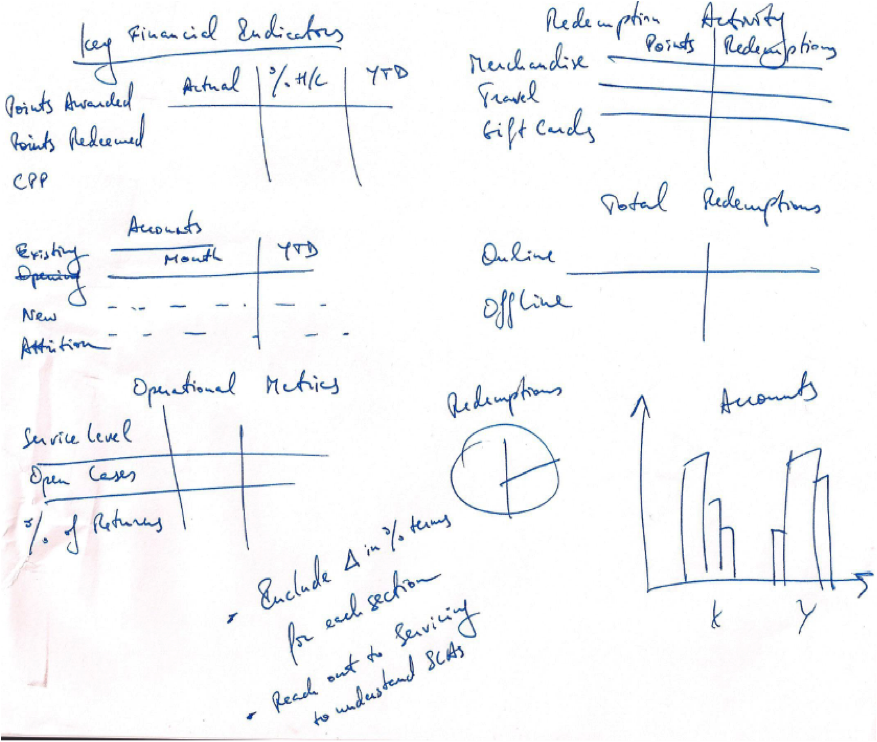 Key Financial Indicators
Actual % H/L YTD
Points Awarded
Points Redeemed
CPP
Redemption Activity
Points Redemptions
Merchandise
Travel
Gift Cards
Total Redemptions
Online
Offline
Accounts
Month YTD
Existing
Opening
New
Attrition
Operational Metrics
Service Level
Open Cases
% of Returns
Redemptions
Accounts
X Y
• Include Δ in % terms
for each section
• Reach out to Servicing
to understand SLAs